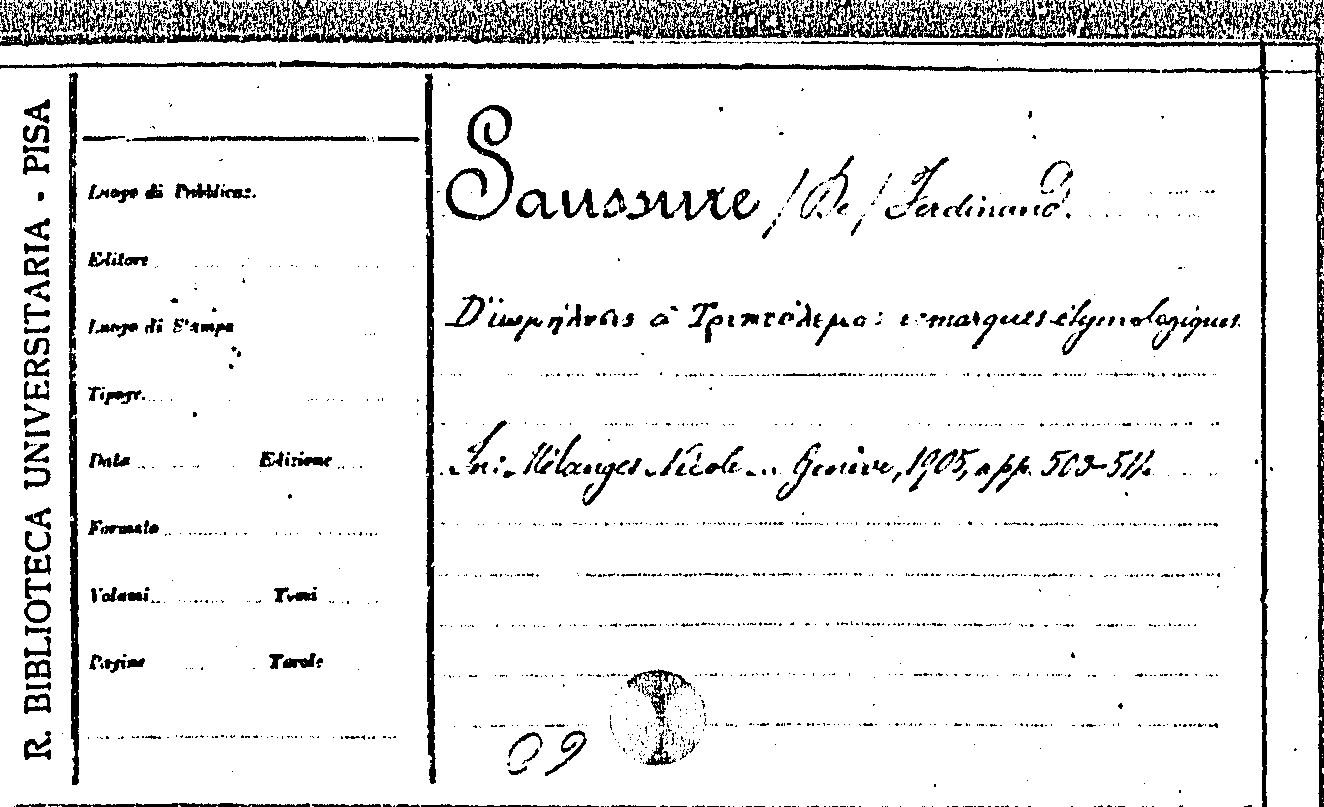 R. BIBLIOTECA UNIVERSITARIA - PISA
Luogo di Pubblicaz.
Editore
Luogo di Stampa
Tipogr.
Data Edizione
Formato
Volumi Tomi
Pagine Tavole
Saussure /De/ Ferdinand.
D'ὠμήλυσις à Τριπτόλεμος: remarques étymologiques.
In: Mélanges Nicole... Genève, 1905, a pp. 503-514.
09